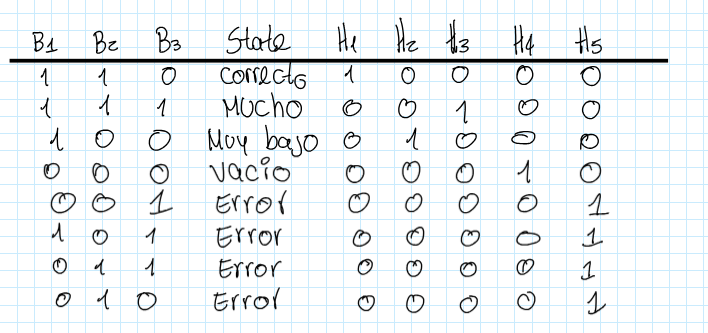 B1 B2 B3 State H1 H2 H3 H4 H5
1 1 0 correcto 1 0 0 0 0
1 1 1 Mucho 0 0 1 0 0
1 0 0 Muy bajo 0 1 0 0 0
0 0 0 vacio 0 0 0 1 0
0 0 1 Error 0 0 0 0 1
1 0 1 Error 0 0 0 0 1
0 1 1 Error 0 0 0 0 1
0 1 0 Error 0 0 0 0 1